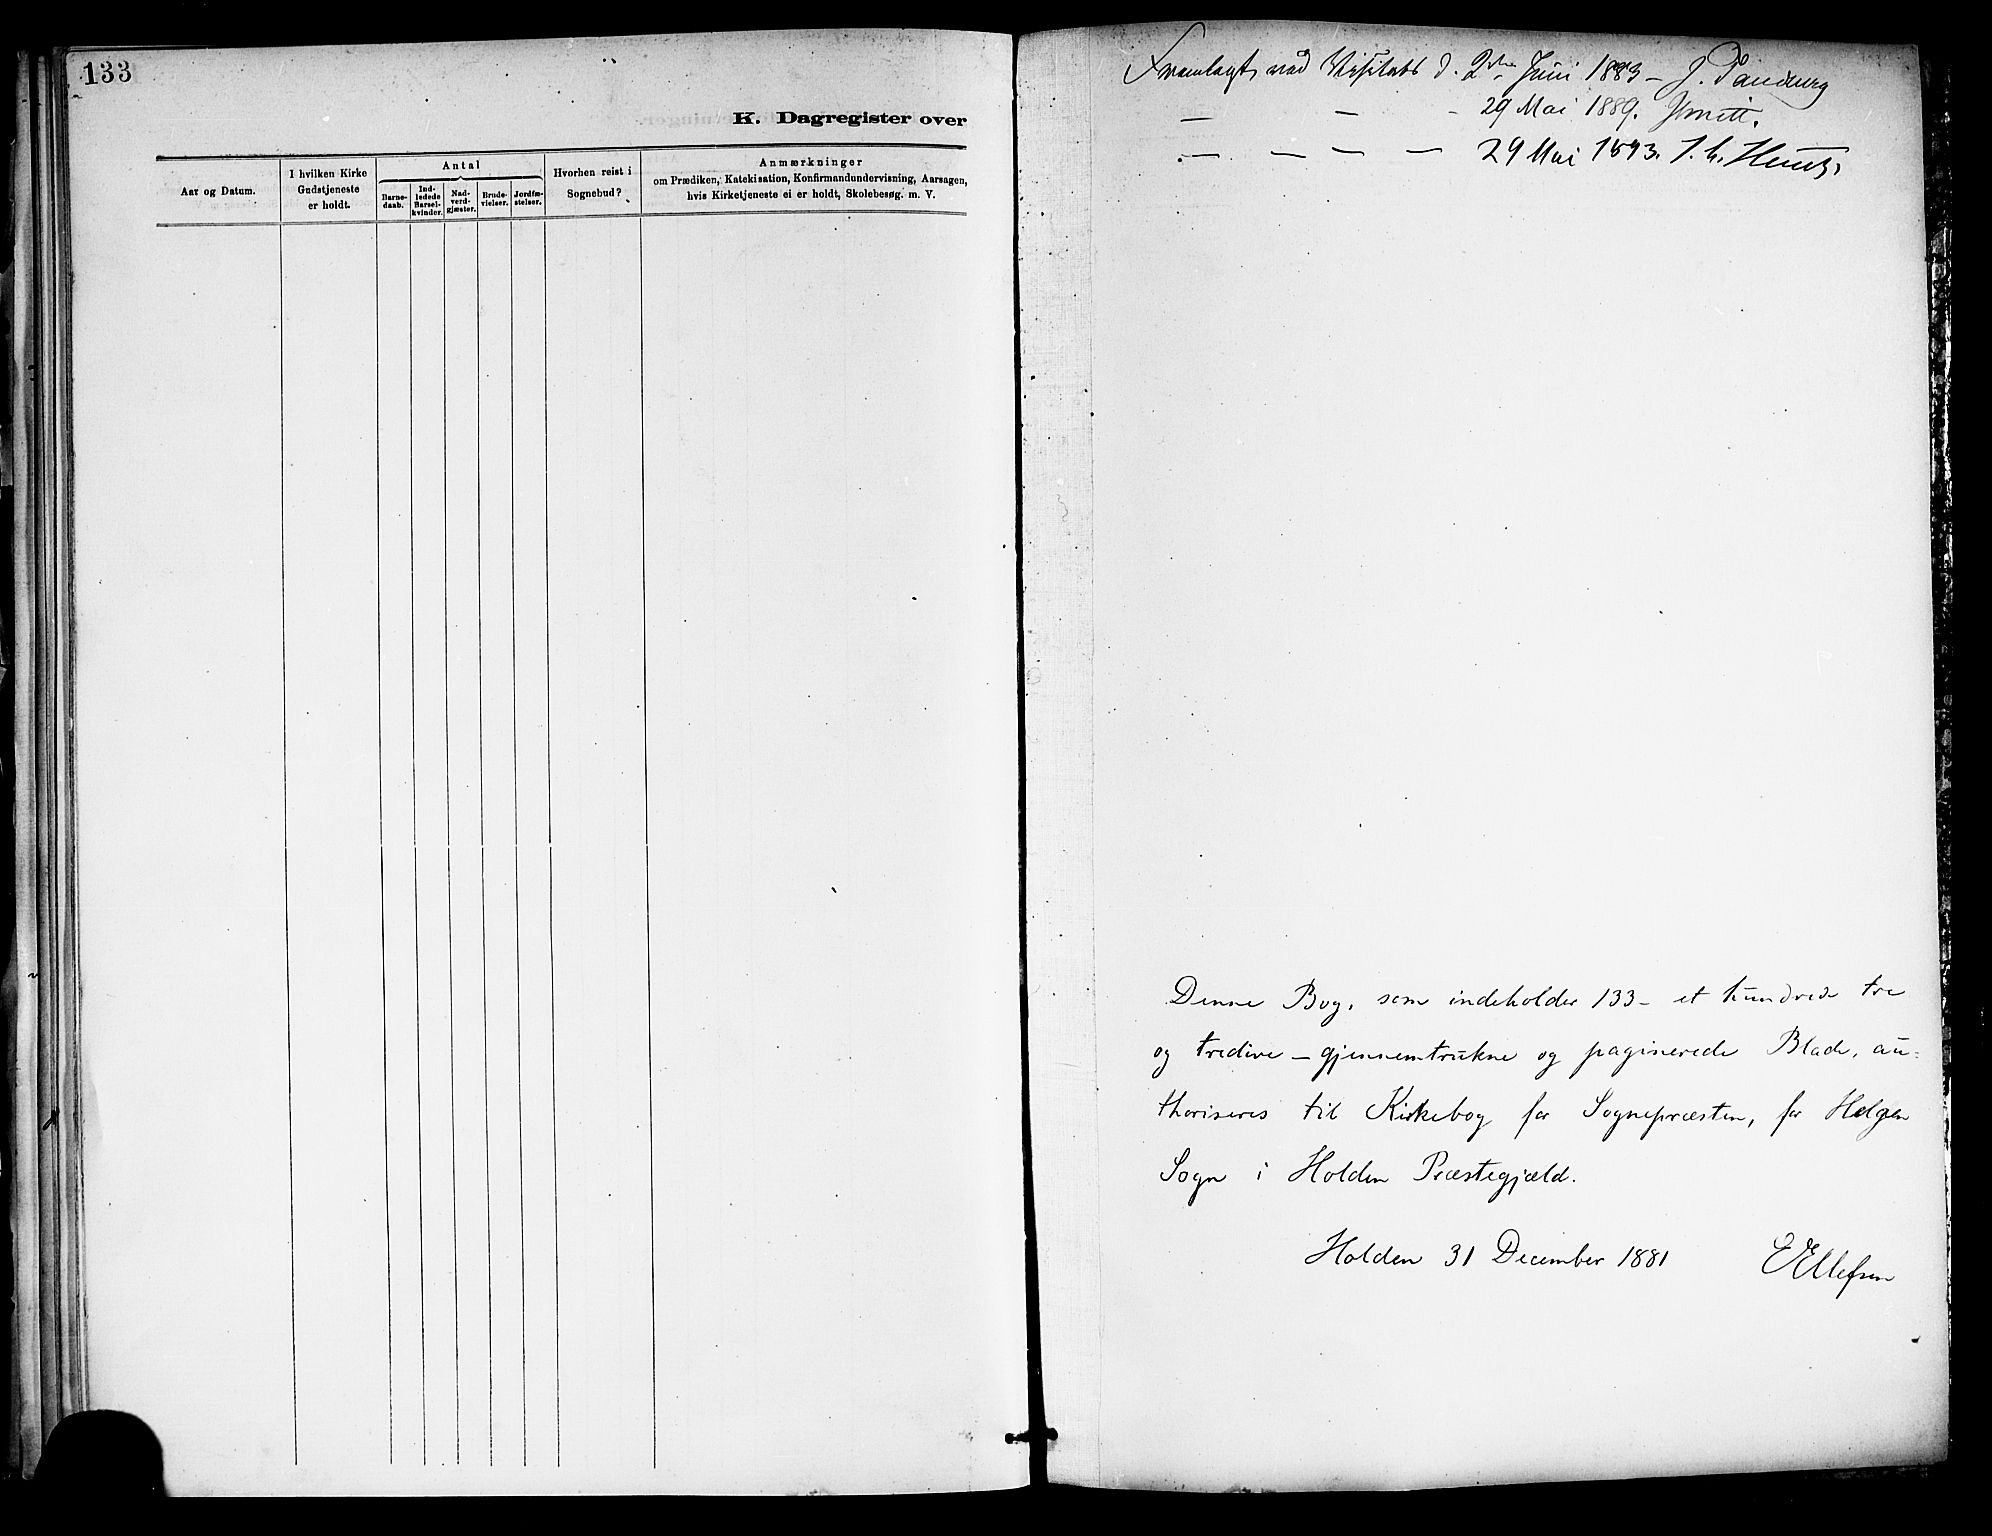 133
K. Dagregister over
Aar og Datum.
I hvilken Kirke
Gudstjeneste
er holdt.
Antal
Barne-
daab.
Ind-
ledede
Barsel-
kvinder.
Nad-
verd-
gjæster.
Brude-
vielser.
Jordfæ-
stelser.
Hvorhen reist i
Sognebud?
Anmærkninger
om Prædiken, Katekisation, Konfirmandundervisning, Aarsagen,
hvis Kirketjeneste ei er holdt, Skolebesøg. m. V.
Fremlagt ved Visitats d. 2den Juni 1883 — J.
— — - 29 Mai 1889.
— — — — 29 Mai 1893.
Denne Bog, som indeholder 133 - et hundrede tre
og tredive - gjennemtrukne og paginerede Blade, au-
thoriseres til Kirkebog for Sognepræsten, for Helgen
Sogn i Holden Præstegjæld.
Holden 31 December 1881 Ellefsen